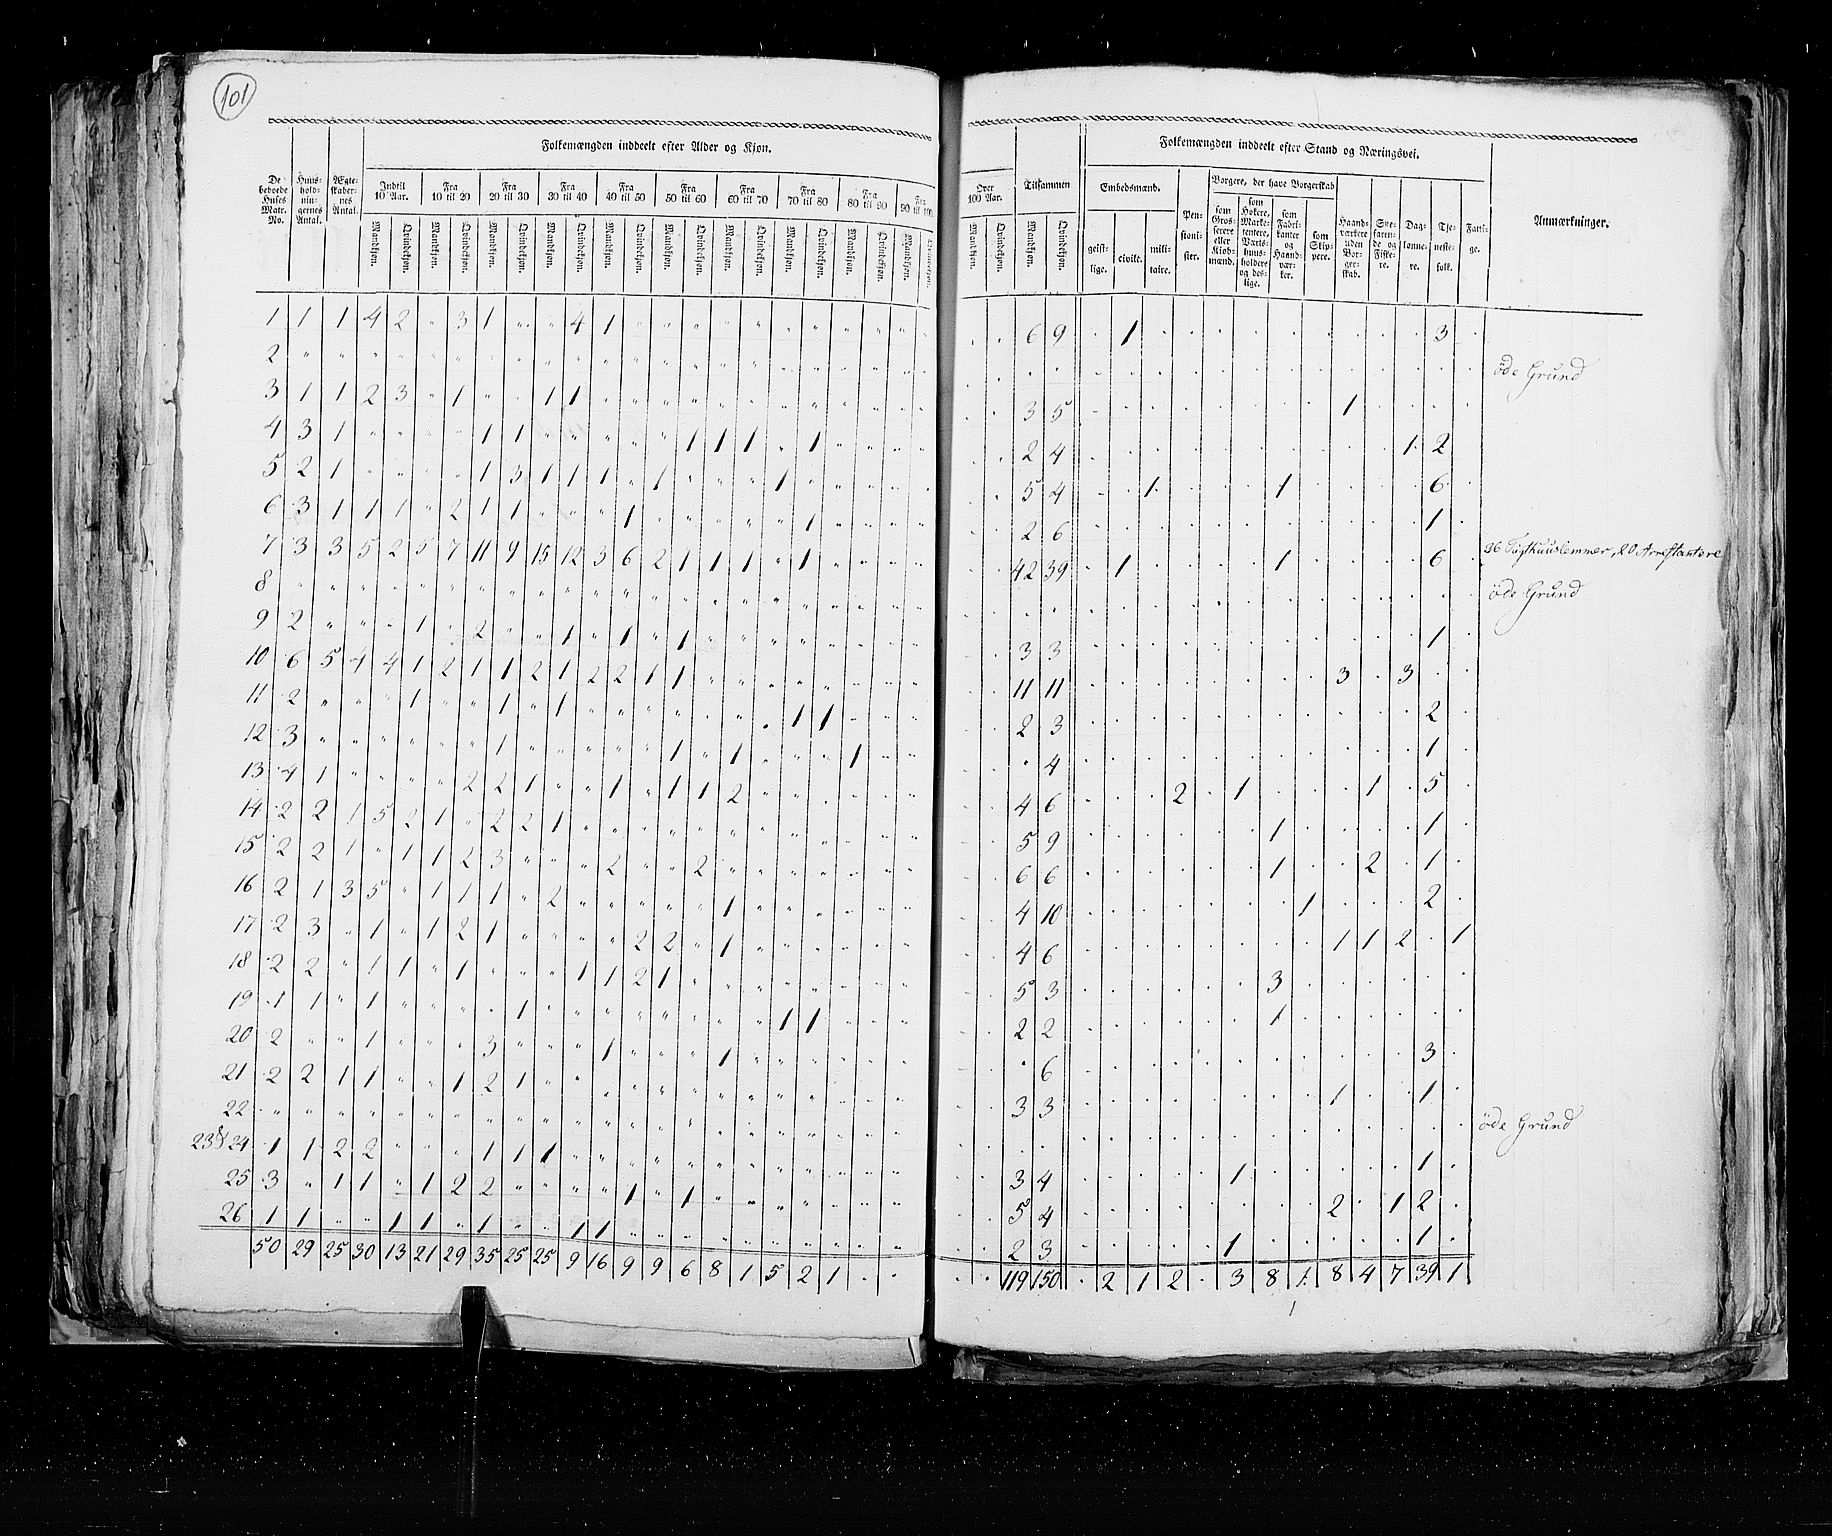 101
Folkemængden inddeelt efter Alder og Kjøn.
De beboede Huses Matr. No.
Huus-hold-nin-gernes Antal.
Ægte-skaber-nes Antal.
Indtil 10 Aar.
Fra 10 til 20
Fra 20 til 30
Fra 30 til 40
Fra 40 til 50
Fra 50 til 60
Fra 60 til 70
Fra 70 til 80
Fra 80 til 90
Fra 90 til 100
Mandkjøn. Qvindekjøn. Mandkjøn. Qvindekjøn. Mandkjøn. Qvindekjøn. Mandkjøn. Qvindekjøn. Mandkjøn. Qvindekjøn. Mandkjøn. Qvindekjøn. Mandkjøn. Qvindekjøn. Mandkjøn. Qvindekjøn. Mandkjøn. Qvindekjøn. Mandkjøn. Qvindekjøn.
1 1 1 4 2 " 3 1 " " 4 1
2
3 1 1 2 3 " 1 " " 1 1
4 3 1 " " " " 1 1 " " " " " " 1 1 1 " 1
5 2 1 " " " " 1 3 1 1 1 " 1 " " " 1
6 3 1 1 1 " 2 1 1 " " " 1 " " " " " 1
7 3 3 5 2 5 7 11 9 15 12 3 6 2 1 1 1 " 1
8
9 2 " " " 1 " 2 " " 1 " 1 " 1
10 6 5 4 4 1 2 1 1 2 1 2 2 1 1
11 2 " " " 1 " " 1 " 1 " " " " " " " 1 1
12 3 " " " " " " 1 " " " " " 1 " 1 " " " 1
13 4 1 " " " " 2 2 1 " " 1 " 1 1 2
14 2 2 1 5 2 1 " 2 2 1
15 2 2 1 " 1 1 2 3 " " " 2 " " 2
16 2 1 3 5 " 1 1 1 " 2 " " " " " 1
17 2 3 " 1 " 1 2 1 " " " " 2 2 " 1
18 2 2 " 1 1 " 1 " " " 1 1 2 1
19 1 1 " 1 " " " " 1 " " " " " " " " 1 1
20 2 " " 1 " " " 3 " " " 1 " " " 1
21 2 2 1 1 " " 1 2 1
22
23 & 24 1 1 2 2 " " " 1 1 1
25 3 " 1 1 " 1 2 2 " " " " 1 " 1
26 1 1 " " 1 1 " 1 " " 1 1
50 29 25 30 13 21 29 35 25 25 9 16 9 9 6 8 1 5 2 1 . .
Over 100 Aar.
Tilsammen
Folkemængden inddeelt efter Stand og Næringsvei.
Embedsmænd.
Pen-sioni-ster.
Borgere, der have Borgerskab
Haand-værkere uden Bor-ger-skab.
Søe-faren-de og Fiske-re.
Dag-lønne-re.
Tje-neste-folk.
Fatti-ge.
Anmærkninger.
Mandkjøn. Qvindekjøn. Mandkjøn. Qvindekjøn.
geist-lige. civile. mili-taire.
som Gros-serere eller Kiøb-mænd.
som Høkere, Marke-tentere, Værts-huus-holdere og des-lige.
som Fabri-kanter og Haand-vær-ker.
som Skip-pere.
6 9 . 1 . . . . . . . . . 3 .
öde Grund
3 5 . . . . . . . . 1 . . . .
2 4 . . . . . . . . . . 1 2
5 4 . . 1 . . . 1 . . . . 6 .
2 6 . . . . . . . . . . . 1 .
42 39 . 1 . . . . 1 . . . . 6 . 36 Tugthuuslemmer, 20 Arrestantere
öde Grund
3 3 . . . . . . . . . . . 1 .
11 11 . . . . . . . . 3 . 3 . .
2 3 . . . . . . . . . . . 2 .
. 4 . . . . . . . . . . . 1 .
4 6 . . . 2 . 1 . . . 1 . 5 .
5 9 . . . . . . 1 . . . . 1 .
6 6 . . . . . . 1 . . 2 . 1 .
4 10 . . . . . . . 1 . . . 2 .
4 6 . . . . . . . . 1 1 2 . 1
5 3 . . . . . . 3 . . . . . .
2 2 . . . . . . 1 . . . . . .
. 6 . . . . . . . . . . . 3 .
3 3 . . . . . . . . 1 . . 1 .
öde Grund
3 4 . . . . . 1 . . . . . 1 .
5 4 . . . . . . . . 2 . 1 2 .
2 3 . . . . . 1 . . . . . 1 .
. . 119 150 . 2 1 2 . 3 8 1 8 4 7 39 1